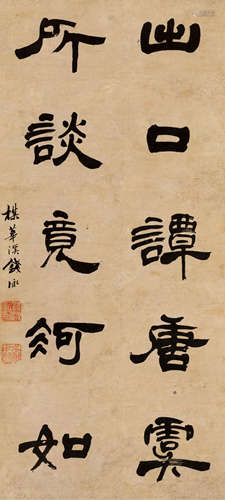 出口譚唐虞
所談竟何如
楳華溪錢泳